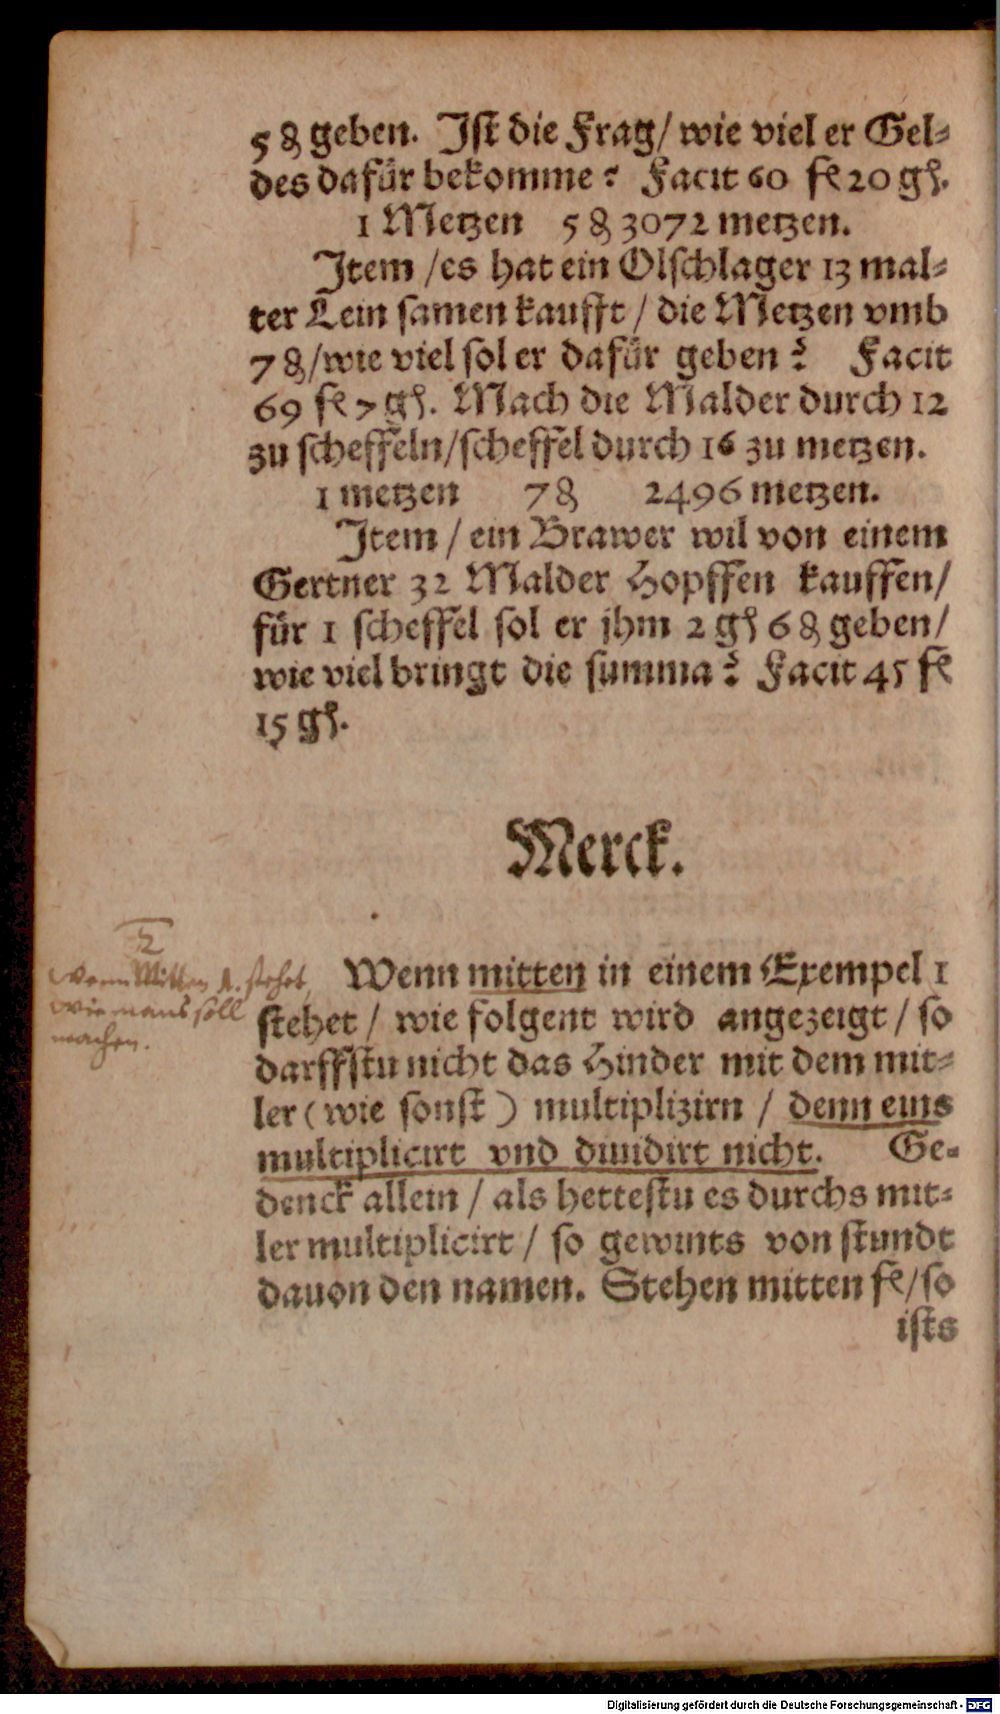 5 ₰ geben. Jst die Frag/ wie viel er Gel⸗
des dafür bekomme? Facit 60 fl 20 gſ.
1 Metzen 5 ₰ 3072 metzen.
Jtem /es hat ein Olschlager 13 mal⸗
ter Lein samen kaufft / die Metzen vmb
7 ₰/wie viel sol er dafür geben? Facit
69 fl 7 gſ. Mach die Malder durch 12
zu scheffeln/scheffel durch 16 zu metzen.
1 metzen 7 ₰ 2496 metzen.
Jtem / ein Brawer wil von einem
Gertner 32 Malder Hopffen kauffen/
für 1 scheffel sol er jhm 2 gſ 6 ₰ geben/
wie viel bringt die summa? Facit 45 fl
15 gſ.
Merck.
2
Wenn Mitten 1. stehet,
wie mans soll
machen.
Wenn mitten in einem Exempel 1
stehet / wie folgent wird angezeigt / so
darffstu nicht das Hinder mit dem mit⸗
ler (wie sonst) multiplizirn / denn eins
multiplicirt vnd diuidirt nicht. Ge⸗
denck allein / als hettestu es durchs mit⸗
ler multiplicirt / so gewints von stundt
dauon den namen. Stehen mitten fl/so
ists
Digitalisierung gefördert durch die Deutsche Forschungsgemeinschaft - DFG